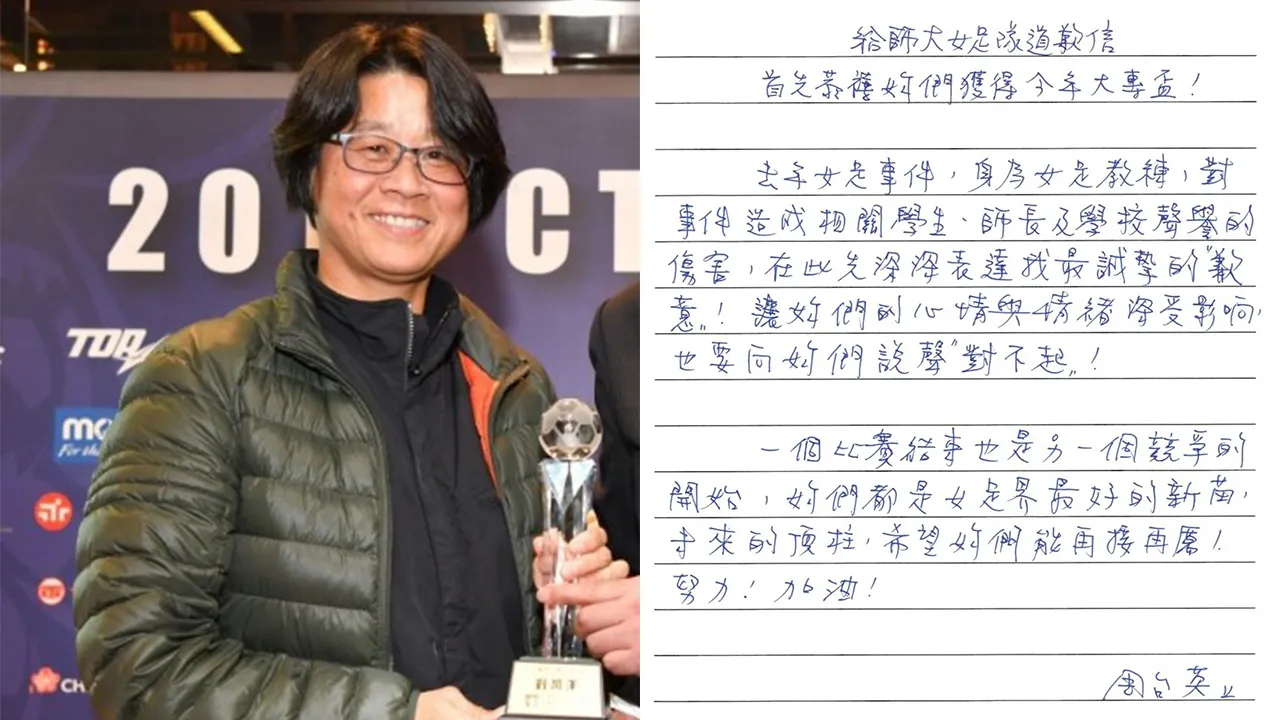 20
CT
TOP
For th
CH
給師大女足隊道歉信
首先恭禧妳們獲得今年大專盃！
去年女足事件，身為女足教練，對
事件造成相關學生、師長及學校聲譽的
傷害，在此先深深表達我最誠摯的〝歉
意〞！讓妳們的心情與情緒深受影响，
也要向妳們說聲〝對不起〞！
一個比賽結束也是另一個競爭的
開始，妳們都是女足界最好的新苗，
未來的頂柱，希望妳們能再接再厲！
努力！加油！
周台英